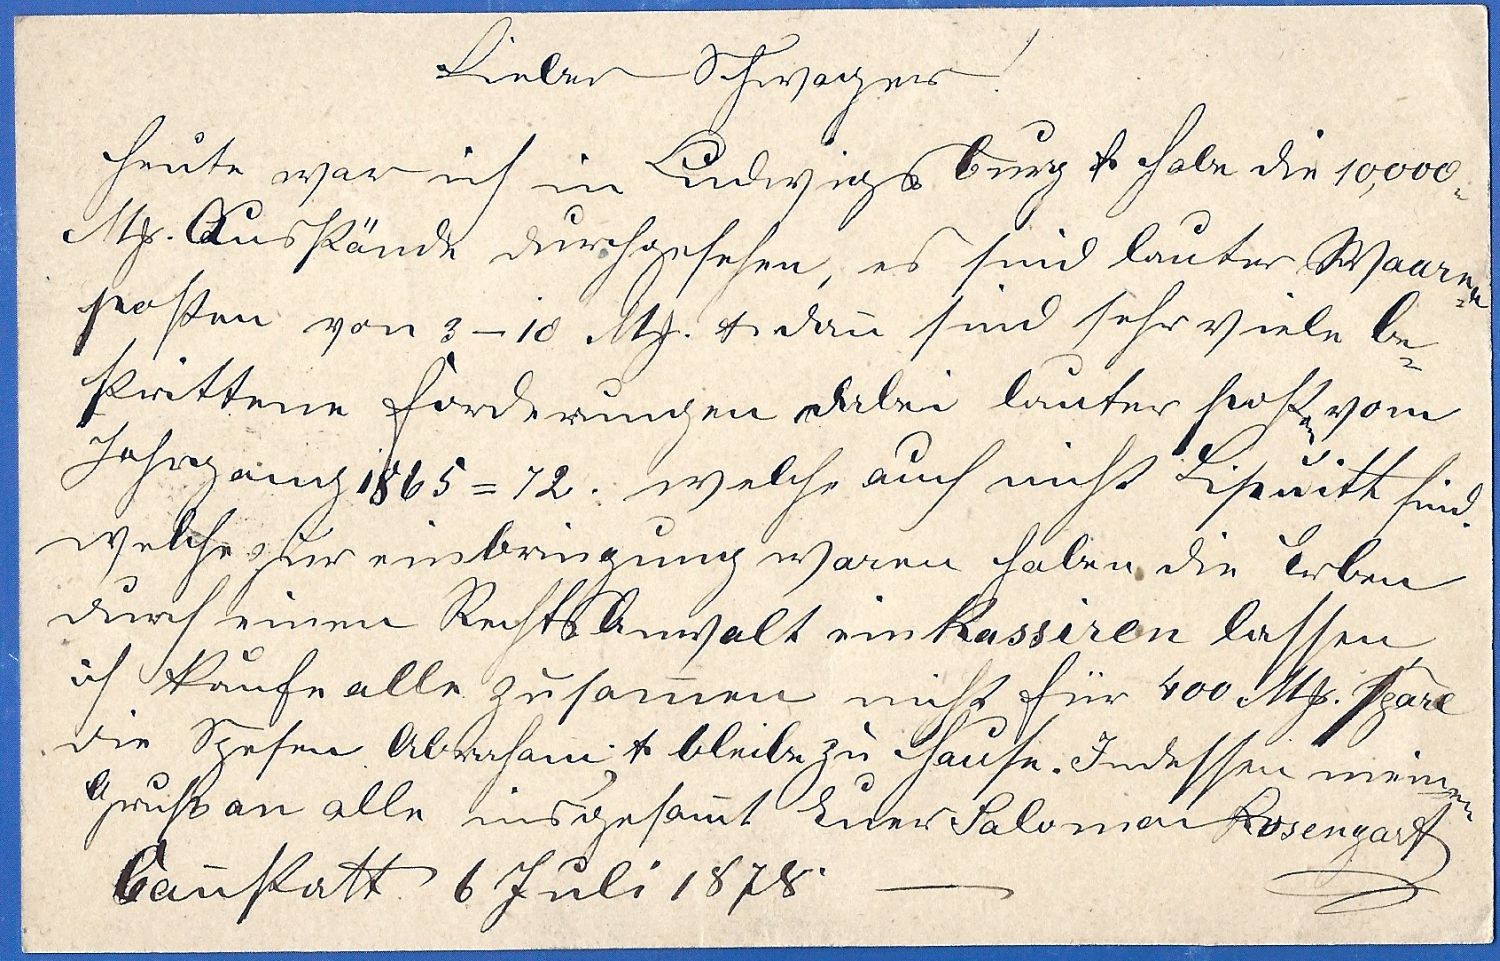 Lieber Schwager!
Heute war ich in Ludwigsburg & habe die 10,000
Mk. Ausstände durchgesehen, es sind lauter Waaren-
posten von 3–10 Mk. & dañ sind sehr viele be-
strittene Forderungen dabei lauter posten vom
Jahrgang 1865=72. welche auch nicht Liquitt sind.
welche zur einbringung waren haben die Erben
durch einen RechtsAnwalt einkassiren lassen,
ich kaufe alle zusam̄en nicht für 400 Mk. spare
die Spesen Abraham & bleibe zu Hause. Indessen meinen
Gruß an alle insgesam̄t Euer Salomon Rosengart
Cañstatt 6 Juli 1878.